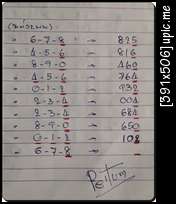 6-7-8 - 825
4-5-6 - 816
8-9-0 - 469
4-5-6 - 764
0-1-2 - 932
2-3-4 - 004
2-3-4 - 684
8-9-0 - 650
0-1-2 - 102
6-7-8 -
[391x506] upic.me